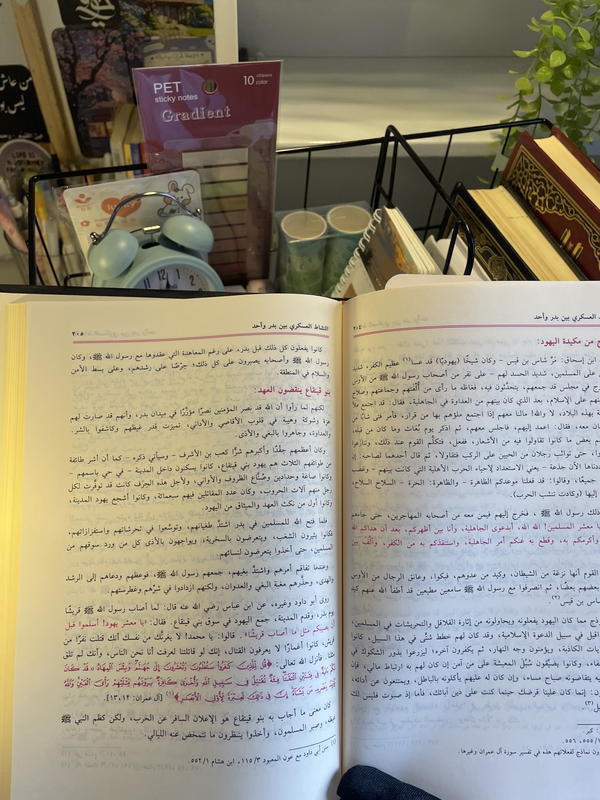 PET
sticky notes
10
color
Gradient
من عاش
النشاط العسكري بين بدر وأحد
٢٠٤
من مكيدة اليهود:
ابن إسحاق: مَرَّ شاس بن قيس - وكان شيخًا (يهوديًّا) قد عسا(١) عظيم الكفر، شديد
على المسلمين، شديد الحسد لهم - على نفر من أصحاب رسول الله ﷺ من الأوس
في مجلس قد جمعهم، يتحدَّثون فيه، فغاظه ما رأى من أُلفتهم وجماعتهم وصلاح
على الإسلام، بعد الذي كان بينهم من العداوة في الجاهلية، فقال: قد اجتمع ملأ
بهذه البلاد، لا والله! مالنا معهم إذا اجتمع ملؤهم بها من قرار، فأمر فتى شابًّا
معه، فقال: اعمد إليهم، فاجلس معهم، ثم اذكر يوم بُعاث وما كان من قبله،
بعض ما كانوا تقاولوا فيه من الأشعار، ففعل، فتكلَّم القوم عند ذلك، وتنازعوا
حتى تواثب رجلان من الحيين على الركب فتقاولا، ثم قال أحدهما لصاحبه: إن
رددناها الآن جذعة - يعني الاستعداد لإحياء الحرب الأهلية التي كانت بينهم - وغضب
جميعًا، وقالوا: قد فعلنا موعدكم الظاهرة - والظاهرة: الحرة - السلاح السلاح،
إليها (وكادت تنشب الحرب).
ذلك رسول الله ﷺ، فخرج إليهم فيمن معه من أصحابه المهاجرين، حتى جاءهم
معشر المسلمين! الله الله، أبدعوى الجاهلية، وأنا بين أظهركم، بعد أن هداكم الله
وأكرمكم به، وقطع به عنكم أمر الجاهلية، واستنقذكم به من الكفر، وألَّف بين
القوم أنها نزغة من الشيطان، وكيد من عدوهم، فبكوا، وعانق الرجال من الأوس
بعضهم بعضًا، ثم انصرفوا مع رسول الله ﷺ سامعين مطيعين قد أطفأ الله عنهم كيد
شاس بن قيس(٢)
مما كان اليهود يفعلونه ويحاولونه من إثارة القلاقل والتحريشات في المسلمين،
في سبيل الدعوة الإسلامية، وقد كان لهم خطط شتَّى في هذا السبيل، كانوا
الكاذبة، ويؤمنون وجه النهار، ثم يكفرون آخره؛ ليزرعوا بذور الشكوك في
وكانوا يضيِّقون سُبُل المعيشة على من آمن إن كان لهم به ارتباط مالي، فإن
يتقاضونه صباح مساء، وإن كان له عليهم يأكلونه بالباطل، ويمتنعون عن أدائه،
إنما كان علينا قرضك حينما كنت على دين آبائك، فأما إذ صبوت فليس لك
٥٥٥، ٥٥٦.
نماذج لفعلاتهم هذه في تفسير سورة آل عمران وغيرها.
النشاط العسكري بين بدر وأحد
٢٠٥
كانوا يفعلون كل ذلك قبل بدر، على رغم المعاهدة التي عقدوها مع رسول الله ﷺ، وكان
رسول الله ﷺ وأصحابه يصبرون على كل ذلك؛ حِرْصًا على رشدهم، وعلى بسط الأمن
والسلام في المنطقة.
بنو قينقاع ينقضون العهد:
لكنهم لما رأوا أن الله قد نصر المؤمنين نصرًا مؤزَّرًا في ميدان بدر، وأنهم قد صارت لهم
عزة وشوكة وهيبة في قلوب الأقاصي والأداني، تميزت قدر غيظهم وكاشفوا بالشر.
والعداوة، وجاهروا بالبغي والأذى.
وكان أعظمهم حِقْدًا وأكبرهم شرًّا كعب بن الأشرف - وسيأتي ذكره - كما أن أشر طائفة
من طوائفهم الثلاث هم يهود بني قينقاع، كانوا يسكنون داخل المدينة - في حي باسمهم -
وكانوا صاغة وحدادين وصُنَّاع الظروف والأواني، ولأجل هذه الحِرَف كانت قد توفَّرت لكل
رجل منهم آلات الحروب، وكان عدد المقاتلين فيهم سبعمائة، وكانوا أشجع يهود المدينة،
وكانوا أول من نكث العهد والميثاق من اليهود.
فلما فتح الله للمسلمين في بدر اشتدَّ طغيانهم، وتوسَّعوا في تحرشاتهم واستفزازاتهم،
فكانوا يثيرون الشغب، ويتعرضون بالسخرية، ويواجهون بالأذى كل من ورد سوقهم من
المسلمين، حتى أخذوا يتعرضون لنسائهم.
وعندما تفاقم أمرهم واشتدَّ بغيهم، جمعهم رسول الله ﷺ، فوعظهم ودعاهم إلى الرشد
والهدى، وحذَّرهم مغبة البغي والعدوان، ولكنهم ازدادوا في شرِّهم وغطرستهم.
روى أبو داود وغيره، عن ابن عباس رضي الله عنه قال: لما أصاب رسول الله ﷺ قريشًا
يوم بدر، وقدم المدينة، جمع اليهود في سوق بني قينقاع. فقال: «يا معشر يهود! أسلموا قبل
أن يصيبكم مثل ما أصاب قريشًا». قالوا: يا محمد! لا يغرنَّك من نفسك أنك قتلت نفرًا من
قريش، كانوا أغمارًا لا يعرفون القتال، إنك لو قاتلتنا لعرفت أنا نحن الناس، وأنك لم تلق
مثلنا. فأنزل الله تعالى: ﴿قُل لِّلَّذِينَ كَفَرُوا سَتُغْلَبُونَ وَتُحْشَرُونَ إِلَىٰ جَهَنَّمَ وَبِئْسَ الْمِهَادُ ۝ قَدْ كَانَ
لَكُمْ آيَةٌ فِي فِئَتَيْنِ الْتَقَتَا فِئَةٌ تُقَاتِلُ فِي سَبِيلِ اللَّهِ وَأُخْرَىٰ كَافِرَةٌ يَرَوْنَهُم مِّثْلَيْهِمْ رَأْيَ الْعَيْنِ وَاللَّهُ
يُؤَيِّدُ بِنَصْرِهِ مَن يَشَاءُ إِنَّ فِي ذَٰلِكَ لَعِبْرَةً لِّأُولِي الْأَبْصَارِ﴾(١) [آل عمران: ١٢، ١٣].
كان معنى ما أجاب به بنو قينقاع هو الإعلان السافر عن الحرب، ولكن كظم النبي ﷺ
غيظه، وصبر المسلمون، وأخذوا ينتظرون ما تتمخض عنه الليالي.
(١) سنن أبي داود مع عون المعبود ٣/١١٥، ابن هشام ١/٥٥٢.